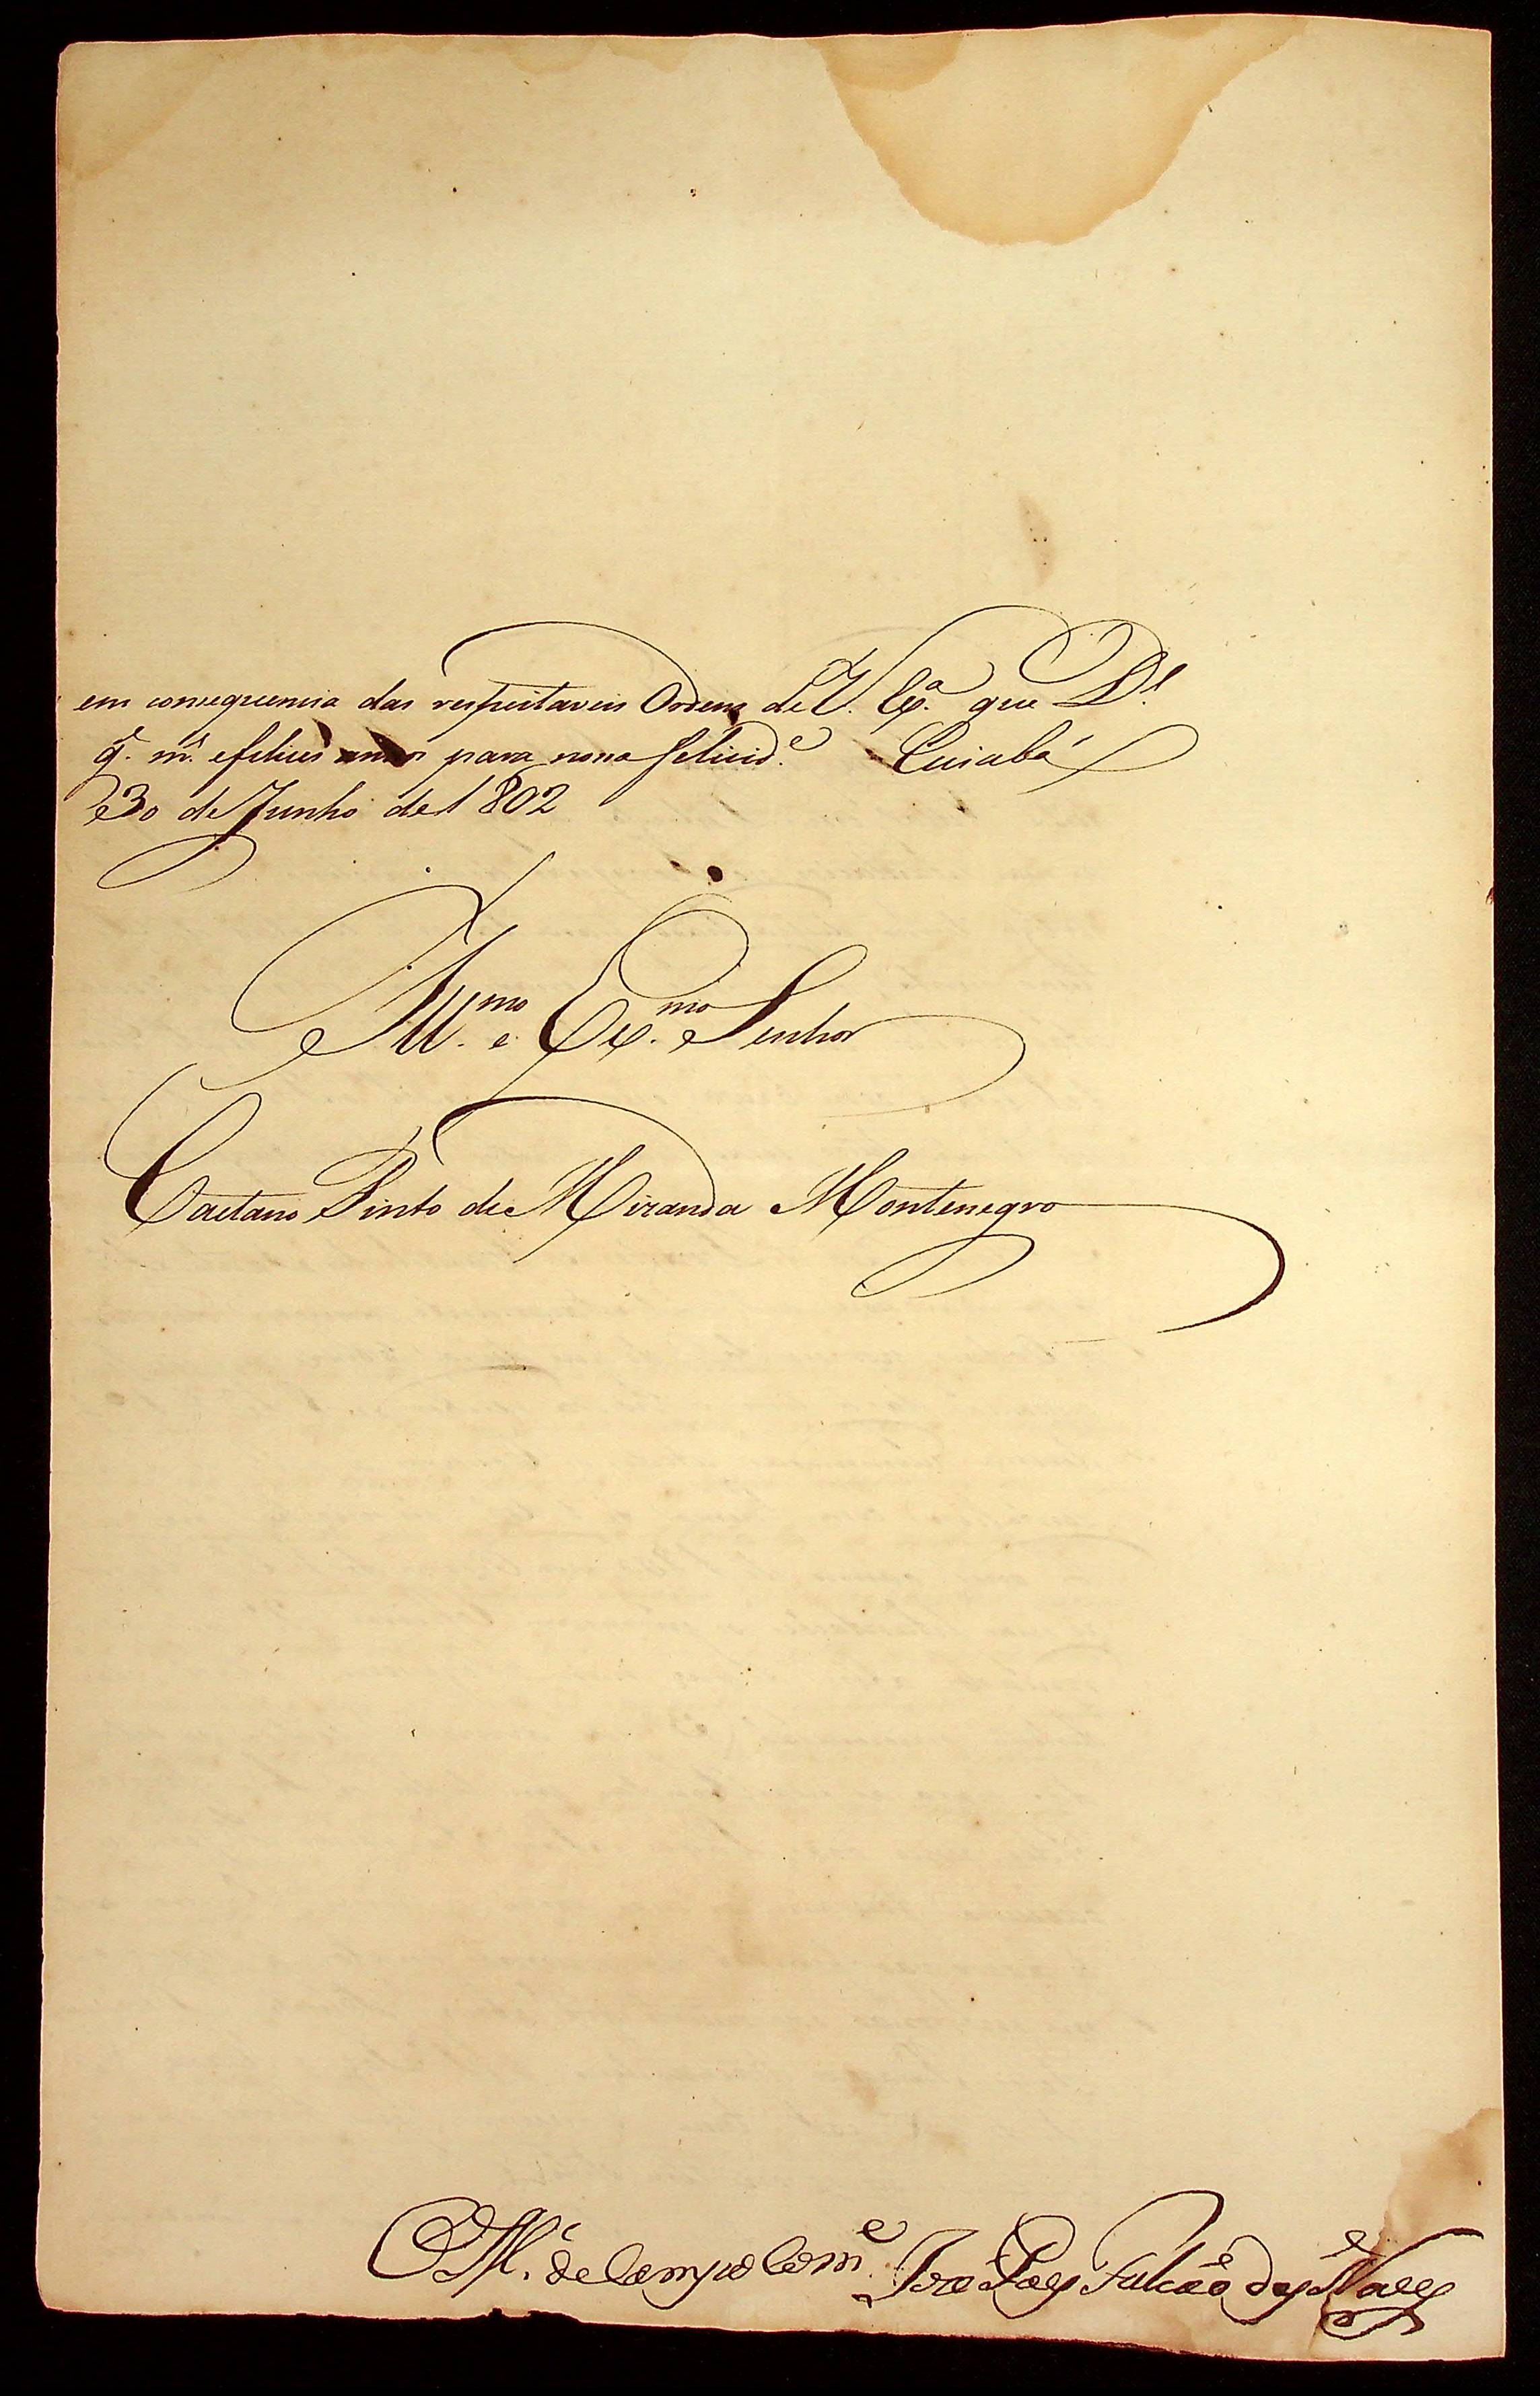 em consequencia das respeitaveis Ordens de V. Ex.ª que D.s
g.e m.s e felices annos para nossa felicid.e Cuiabá
30 de Junho de 1802
Ill.mo e Ex.mo Senhor
Caetano Pinto de Miranda Montenegro
O M.e de Campo Com.e Joze Paes Falcão das Neves